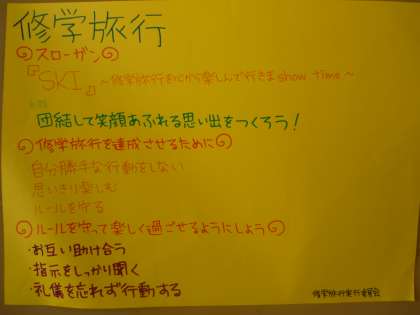 修学旅行
スローガン
『SKI』 ～修学旅行を心から楽しんで行きま show time～
団結して笑顔あふれる思い出をつくろう！
修学旅行を達成させるために
自分勝手な行動をしない
思いきり楽しむ
ルールを守る
ルールを守って楽しく過ごせるようにしよう
・お互い助け合う
・指示をしっかり聞く
・礼儀を忘れず行動する
修学旅行実行委員会